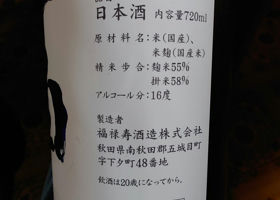 日本酒 内容量720ml
原材料名:米(国産)、
米麹(国産米)
精米歩合:麹米55%
掛米58%
アルコール分:16度
製造者
福禄寿酒造株式会社
秋田県南秋田郡五城目町
字下タ町48番地
飲酒は20歳になってから。